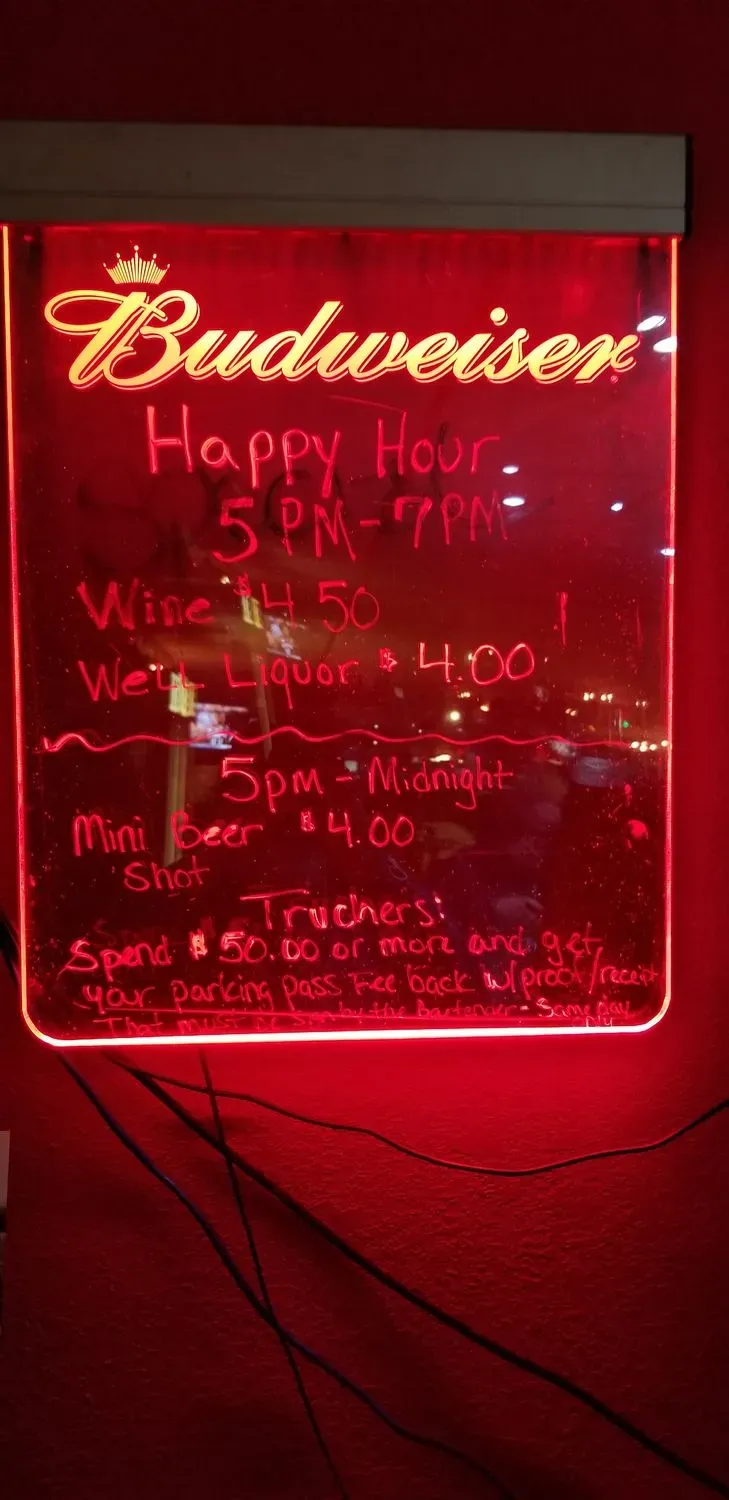 Budweiser
Happy Hour
5PM-7PM
Wine $4.50
Well Liquor $4.00
5pm - Midnight
Mini Beer $4.00
Shot
Truckers:
Spend $50.00 or more and get
your parking pass Fee back w/proof/receipt
That must be sign by the Bartender - Same day
only